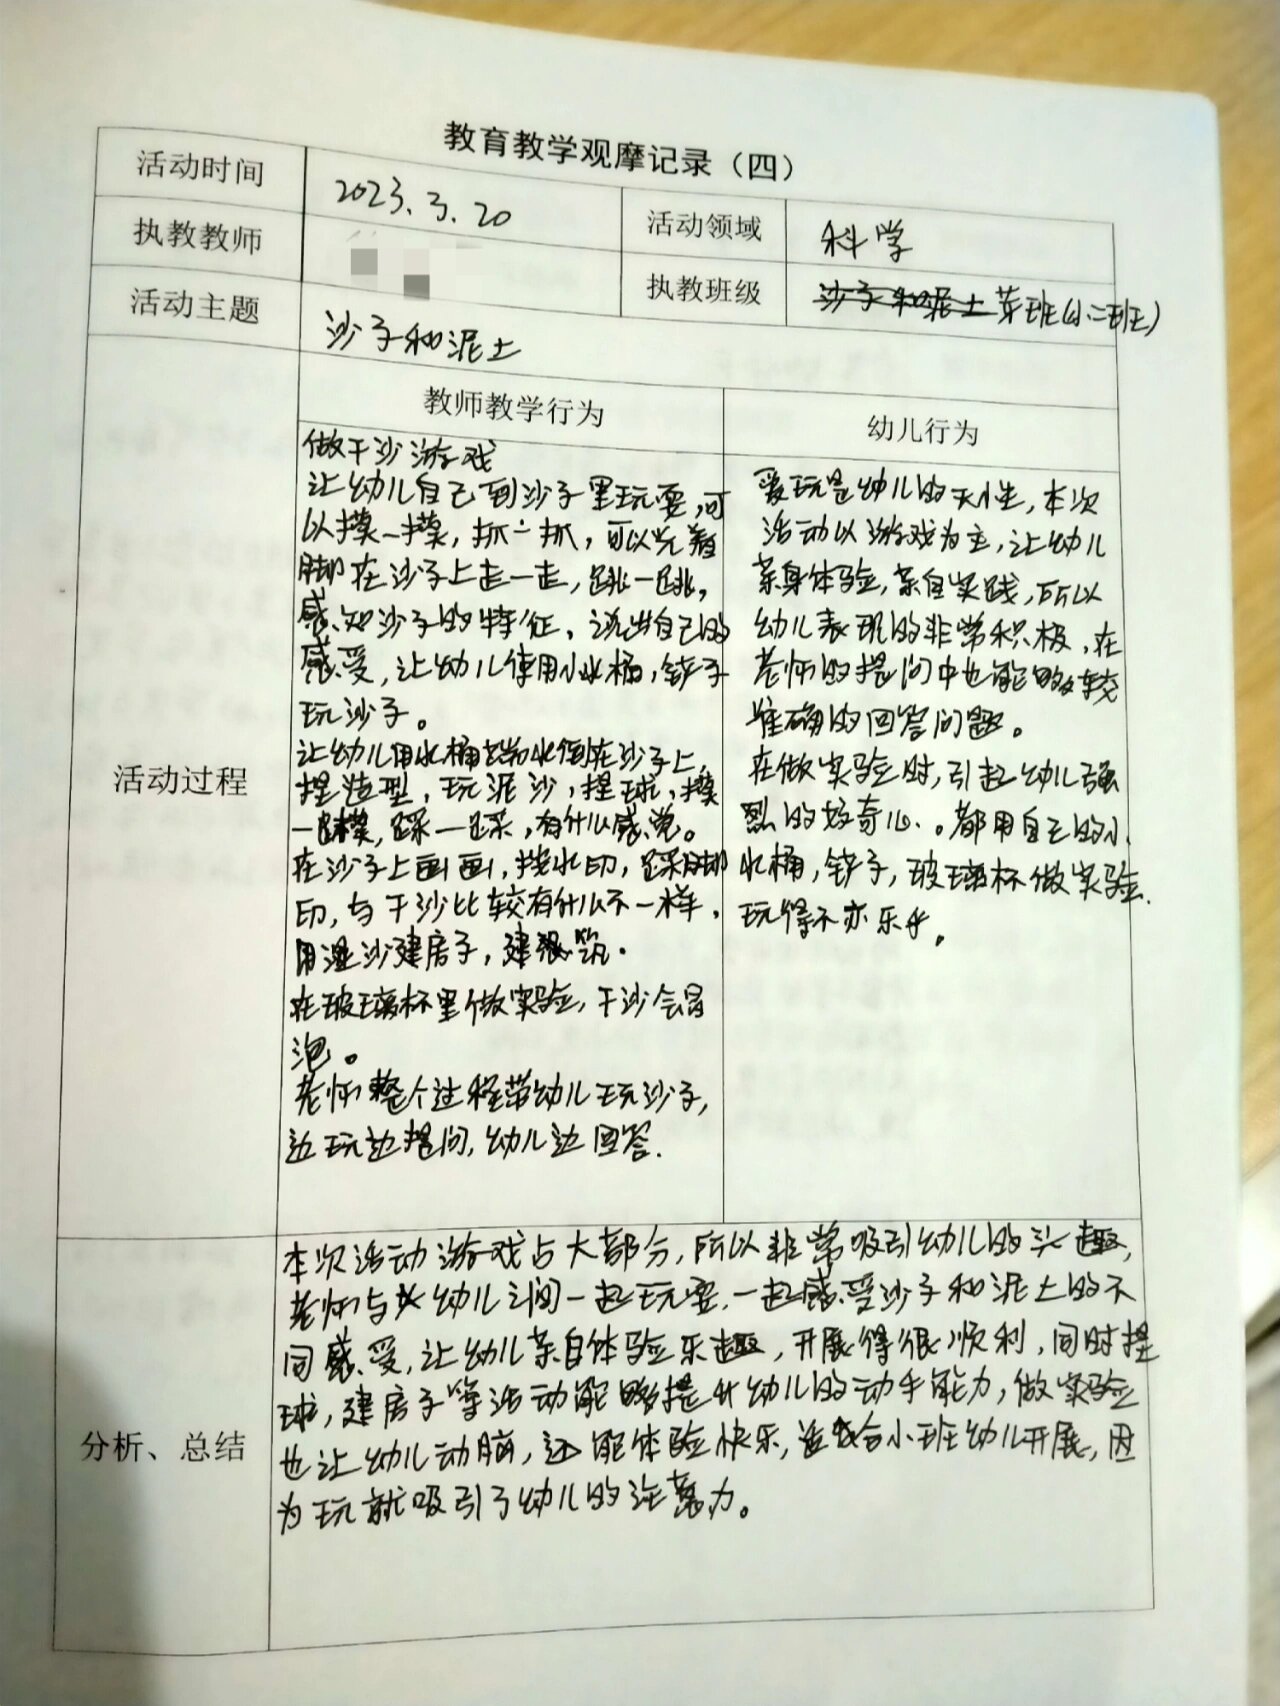 教育教学观摩记录（四）
活动时间
2023.3.20
活动领域
科学
执教教师
执教班级
沙子和泥土 芽班(小二班)
活动主题
沙子和泥土
活动过程
教师教学行为
做干沙游戏
让幼儿自己到沙子里玩耍,可
以摸一摸,抓一抓,可以光着
脚在沙子上走一走,跳一跳,
感知沙子的特征。说出自己的
感受,让幼儿使用小水桶,铲子
玩沙子。
让幼儿用水桶装水倒在沙子上,
捏造型,玩泥沙,捏球,摸
一摸,踩一踩,有什么感觉。
在沙子上画画,找水印,踩脚
印,与干沙比较有什么不一样,
用湿沙建房子,建筑。
在玻璃杯里做实验,干沙会冒
泡。
老师整个过程带幼儿玩沙子,
边玩边提问,幼儿边回答.
幼儿行为
爱玩是幼儿的天性,本次
活动以游戏为主,让幼儿
亲身体验,亲自实践,所以
幼儿表现的非常积极,在
老师的提问中也能够较
准确的回答问题。
在做实验时,引起幼儿强
烈的好奇心.。都用自己的小
水桶,铲子,玻璃杯做实验.
玩得不亦乐乎。
分析、总结
本次活动游戏占大部分,所以非常吸引幼儿的兴趣,
老师与幼儿之间一起玩耍,一起感受沙子和泥土的不
同感受,让幼儿亲自体验乐趣,开展得很顺利,同时捏
球,建房子等活动能够提升幼儿的动手能力,做实验
也让幼儿动脑,还能体验快乐,适合小班幼儿开展,因
为玩就吸引了幼儿的注意力。